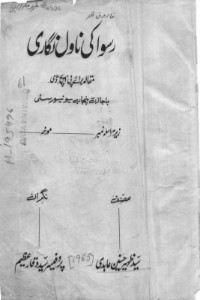 رسوا کی ناول نگاری
مقالہ برائے پی ایچ ڈی
باجازت پنجاب یونیورسٹی
زیر مراسلہ نمبر مورخہ
مصنف
نگران
سید ظہیر حسین عابدی
[1965]
پروفیسر سید وقار عظیم